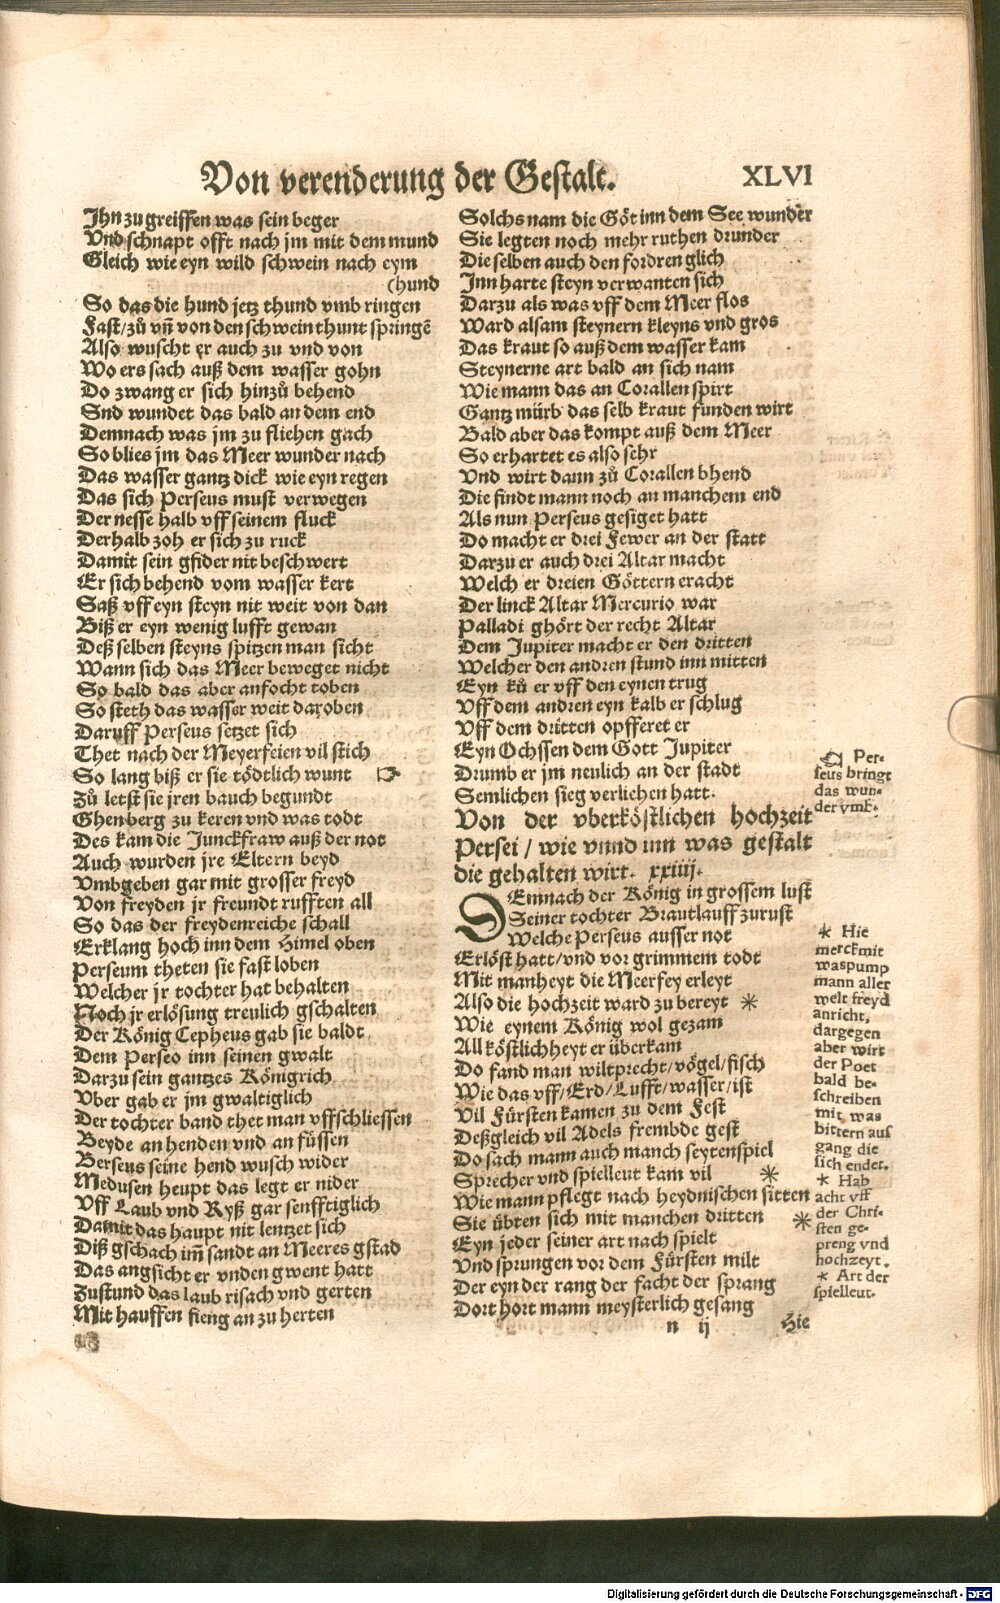 Von verenderung der Gestalt. XLVI
Ihn zu greiffen was sein beger
Vnd schnapt offt nach jm mit dem mund
Gleich wie eyn wild schwein nach eym
(hund
So das die hund jetz thund vmb ringen
Fast/zů vñ von den schwein thunt springē
Also wuscht er auch zu vnd von
Wo ers sach auß dem wasser gohn
Do zwang er sich hinzů behend
Snd wundet das bald an dem end
Demnach was jm zu fliehen gach
So blies jm das Meer wunder nach
Das wasser gantz dick wie eyn regen
Das sich Perseus must verwegen
Der nesse halb vff seinem fluck
Derhalb zoh er sich zu ruck
Damit sein gfider nit beschwert
Er sich behend vom wasser kert
Saß vff eyn steyn nit weit von dan
Biß er eyn wenig lufft gewan
Deß selben steyns spitzen man sicht
Wann sich das Meer beweget nicht
So bald das aber anfocht toben
So steth das wasser weit daroben
Daruff Perseus setzet sich
Thet nach der Meyerfeien vil stich
So lang biß er sie tödtlich wunt ☞
Zů letst sie jren bauch begundt
Ghen berg zu keren vnd was todt
Des kam die Junckfraw auß der not
Auch wurden jre Eltern beyd
Vmbgeben gar mit grosser freyd
Von freyden jr freundt rufften all
So das der freydenreiche schall
Erklang hoch inn dem Himel oben
Perseum theten sie fast loben
Welcher jr tochter hat behalten
Noch jr erlösung treulich gschalten
Der König Cepheus gab sie baldt
Dem Perseo inn seinen gwalt
Darzu sein gantzes Königrich
Vber gab er jm gwaltiglich
Der tochter band thet man vffschliessen
Beyde an henden vnd an füssen
Berseus seine hend wusch wider
Medusen heupt das legt er nider
Vff Laub vnd Ryß gar senfftiglich
Damit das haupt nit lentzet sich
Diß gschach im̄ sandt an Meeres gstad
Das angsicht er vnden gwent hatt
Zustund das laub risach vnd gerten
Mit hauffen fieng an zu herten
Solchs nam die Göt inn dem See wunder
Sie legten noch mehr ruthen drunder
Die selben auch den fordren glich
Inn harte steyn verwanten sich
Darzu als was vff dem Meer flos
Ward alsam steynern kleyns vnd gros
Das kraut so auß dem wasser kam
Steynerne art bald an sich nam
Wie mann das an Corallen spirt
Gantz mürb das selb kraut funden wirt
Bald aber das kompt auß dem Meer
So erhartet es also sehr
Vnd wirt dann zů Corallen bhend
Die findt mann noch an manchem end
Als nun Perseus gesiget hatt
Do macht er drei Fewer an der statt
Darzu er auch drei Altar macht
Welch er dreien Göttern eracht
Der linck Altar Mercurio war
Palladi ghört der recht Altar
Dem Jupiter macht er den dritten
Welcher den andren stund inn mitten
Eyn ků er vff den eynen trug
Vff dem andren eyn kalb er schlug
Vff dem dritten opfferet er
Eyn Ochssen dem Gott Jupiter
Drumb er jm neulich an der stadt
Semlichen sieg verlichen hatt.
Von der vberköstlichen hochzeit
Persei / wie vnnd inn was gestalt
die gehalten wirt. xxiiij.
DEmnach der König in grossem lust
Seiner tochter Brautlauff zurust
Welche Perseus ausser not
Erlöst hatt/vnd vor grimmem todt
Mit manheyt die Meerfey erleyt
Also die hochzeit ward zu bereyt *
Wie eynem König wol gezam
All köstlichheyt er überkam
Do fand man wiltprecht/vögel/fisch
Wie das vff/Erd/Lufft/wasser/ist
Vil Fürsten kamen zu dem Fest
Deßgleich vil Adels frembde gest
Do sach mann auch manch seytenspiel
Sprecher vnd spielleut kam vil *
Wie mann pflegt nach heydnischen sitten
Sie übten sich mit manchen dritten *
Eyn jeder seiner art nach spielt
Vnd sprungen vor dem Fürsten milt
Der eyn der rang der facht der sprang
Dort hort mann meysterlich gesang
n ij Hie
☞ Per-
seus bringt
das wun-
der vmb.
* Hie
merck mit
was pump
mann aller
welt freyd
anricht,
dargegen
aber wirt
der Poet
bald be-
schreiben
mit was
bittern auß
gang die
sich endet.
* Hab
acht vff
der Chri-
sten ge-
preng vnd
hochzeyt.
* Art der
spielleut.
Digitalisierung gefördert durch die Deutsche Forschungsgemeinschaft - DFG